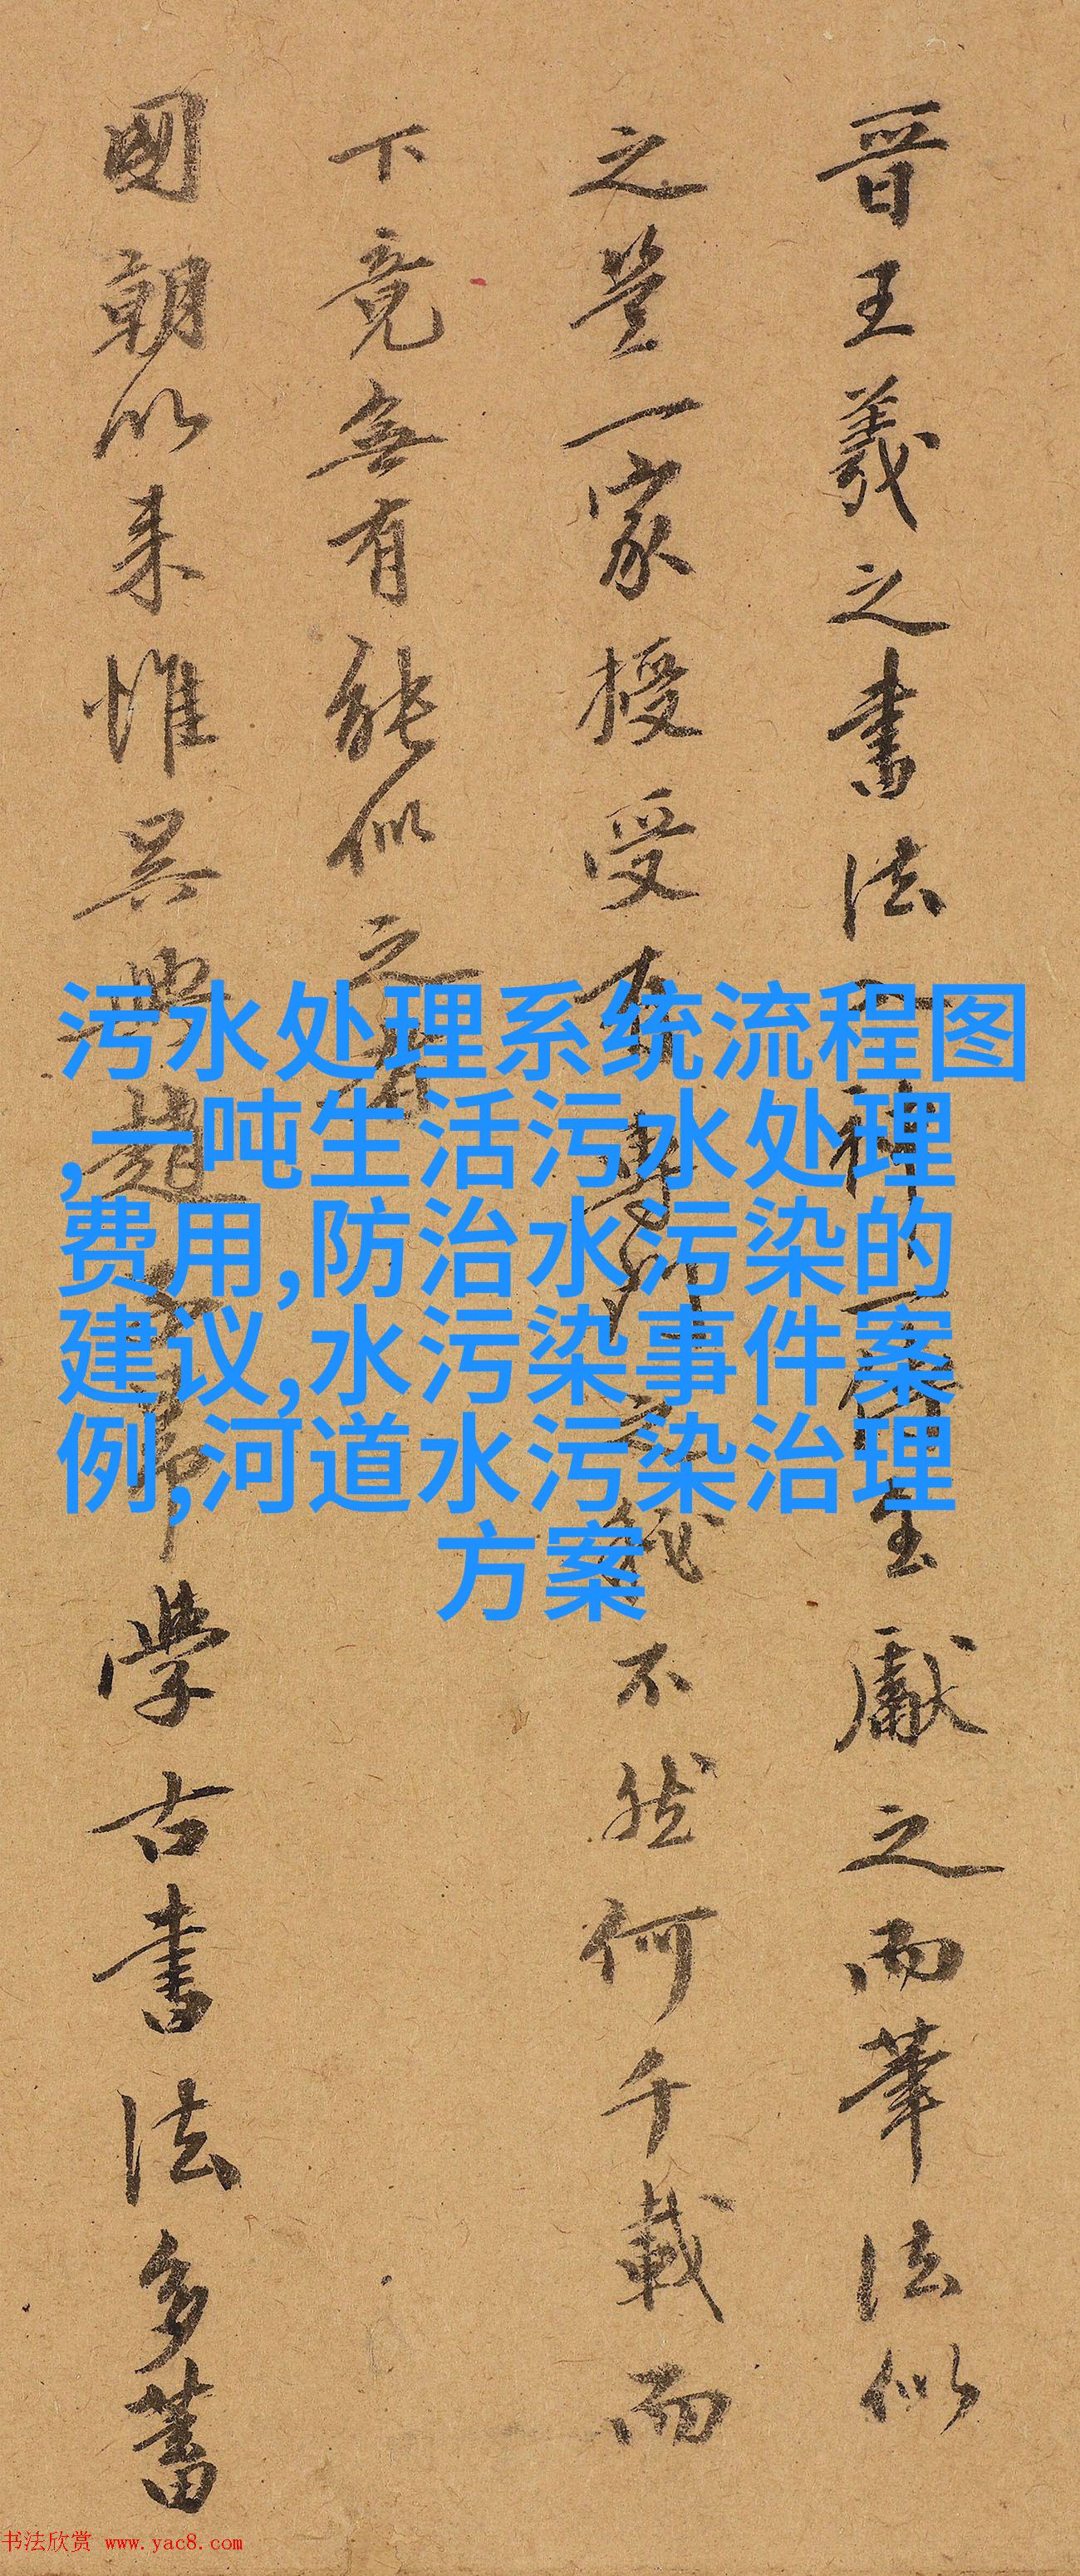 晉王羲之書法神至獻之而筆法似
之豈一家授受有專之不然何千載而
下竟無有能似之者
國朝以来惟吳興趙學古書法多蓄
污水处理系统流程图
,一吨生活污水处理
费用,防治水污染的
建议,水污染事件案
例,河道水污染治理
方案
书法欣赏 www.yac8.com